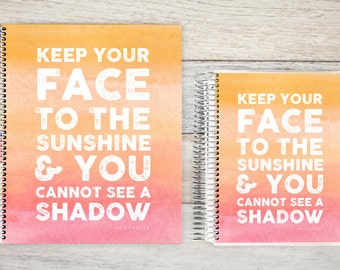 KEEP YOUR
FACE
TO THE
SUNSHINE
& YOU
CANNOT SEE A
SHADOW
HELEN KELLER
KEEP YOUR
FACE
TO THE
SUNSHINE
& YOU
CANNOT SEE A
SHADOW